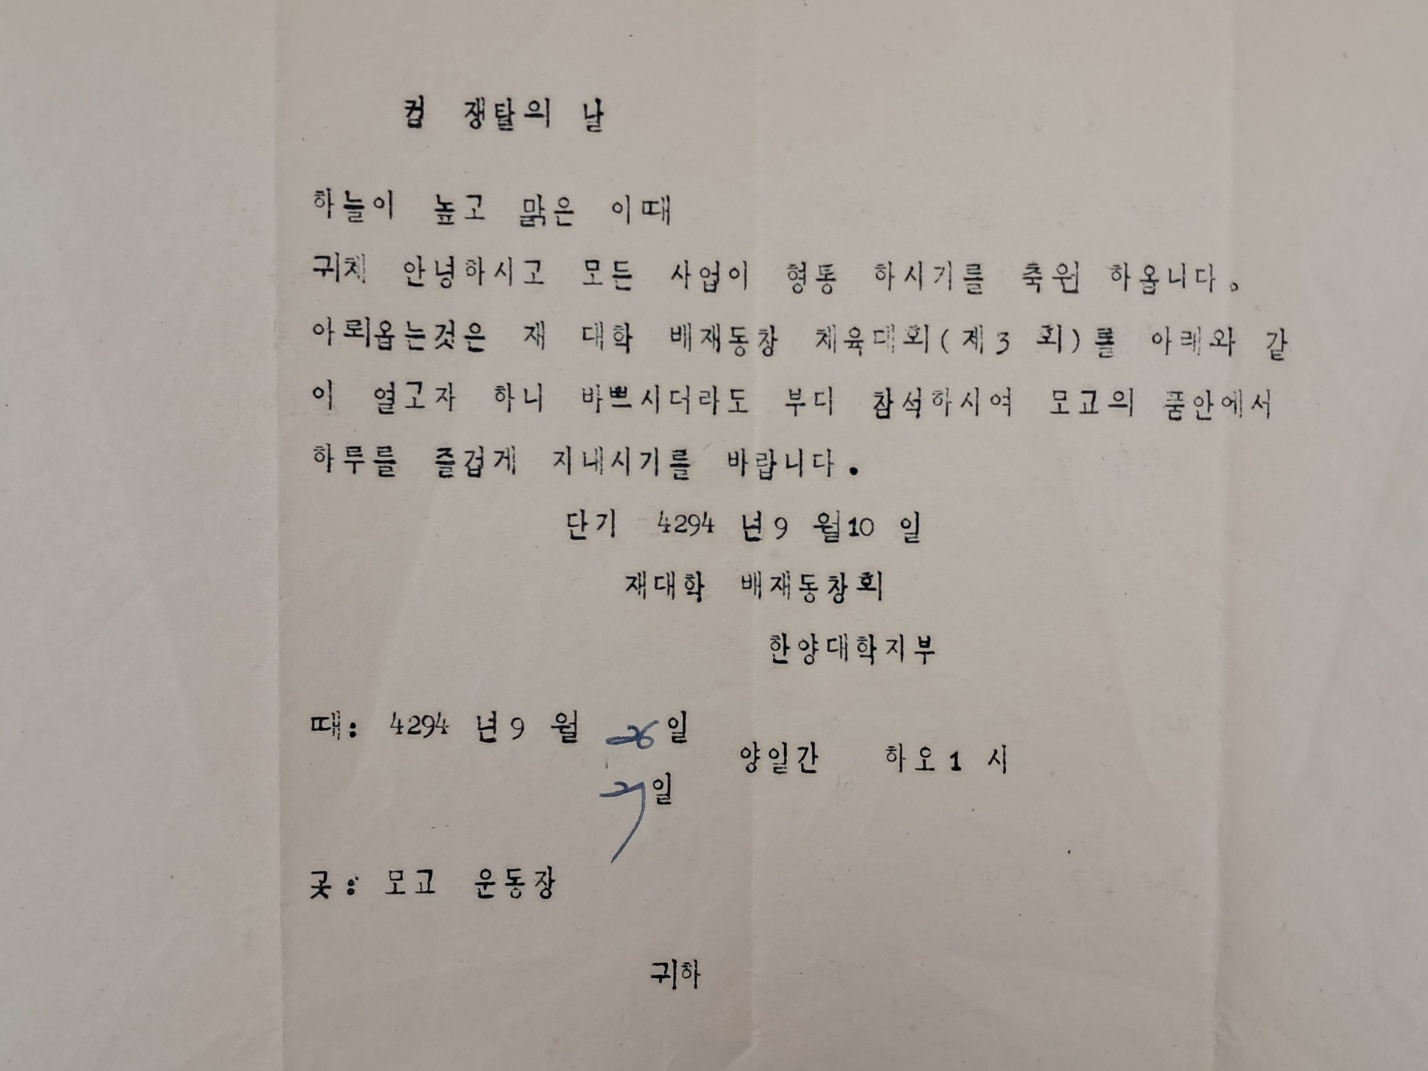 컵 쟁탈의 날
하늘이 높고 맑은 이때
귀체 안녕하시고 모든 사업이 형통 하시기를 축원 하옵니다.
아뢰옵는것은 재 대학 배재동창 체육대회(제3 회)를 아래와 같
이 열고자 하니 바쁘시더라도 부디 참석하시여 모교의 품안에서
하루를 즐겁게 지내시기를 바랍니다.
단기 4294 년9 월10 일
재대학 배재동창회
한양대학지부
때: 4294 년9 월 26일
27일
양일간 하오1 시
곳: 모교 운동장
귀하